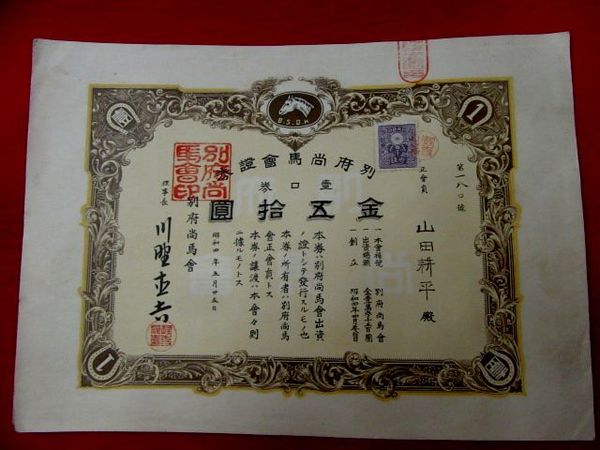 B.S.O.H
別府尚馬會證券
壹口券
金五拾圓
第一八〇號
正會員
山田耕平殿
一本會稱號 別府尚馬會
一出資總額
一創立 昭和四年四月
本券ハ別府尚馬會出資
ノ證トシテ發行スルモノ也
本券ノ所有者ハ別府尚馬
會正會員トス
本券ノ讓渡ハ本會々則
ニ據ルモノトス
昭和四年五月廿五日
別府尚馬會
理事長
別府尚
馬會印
1
1